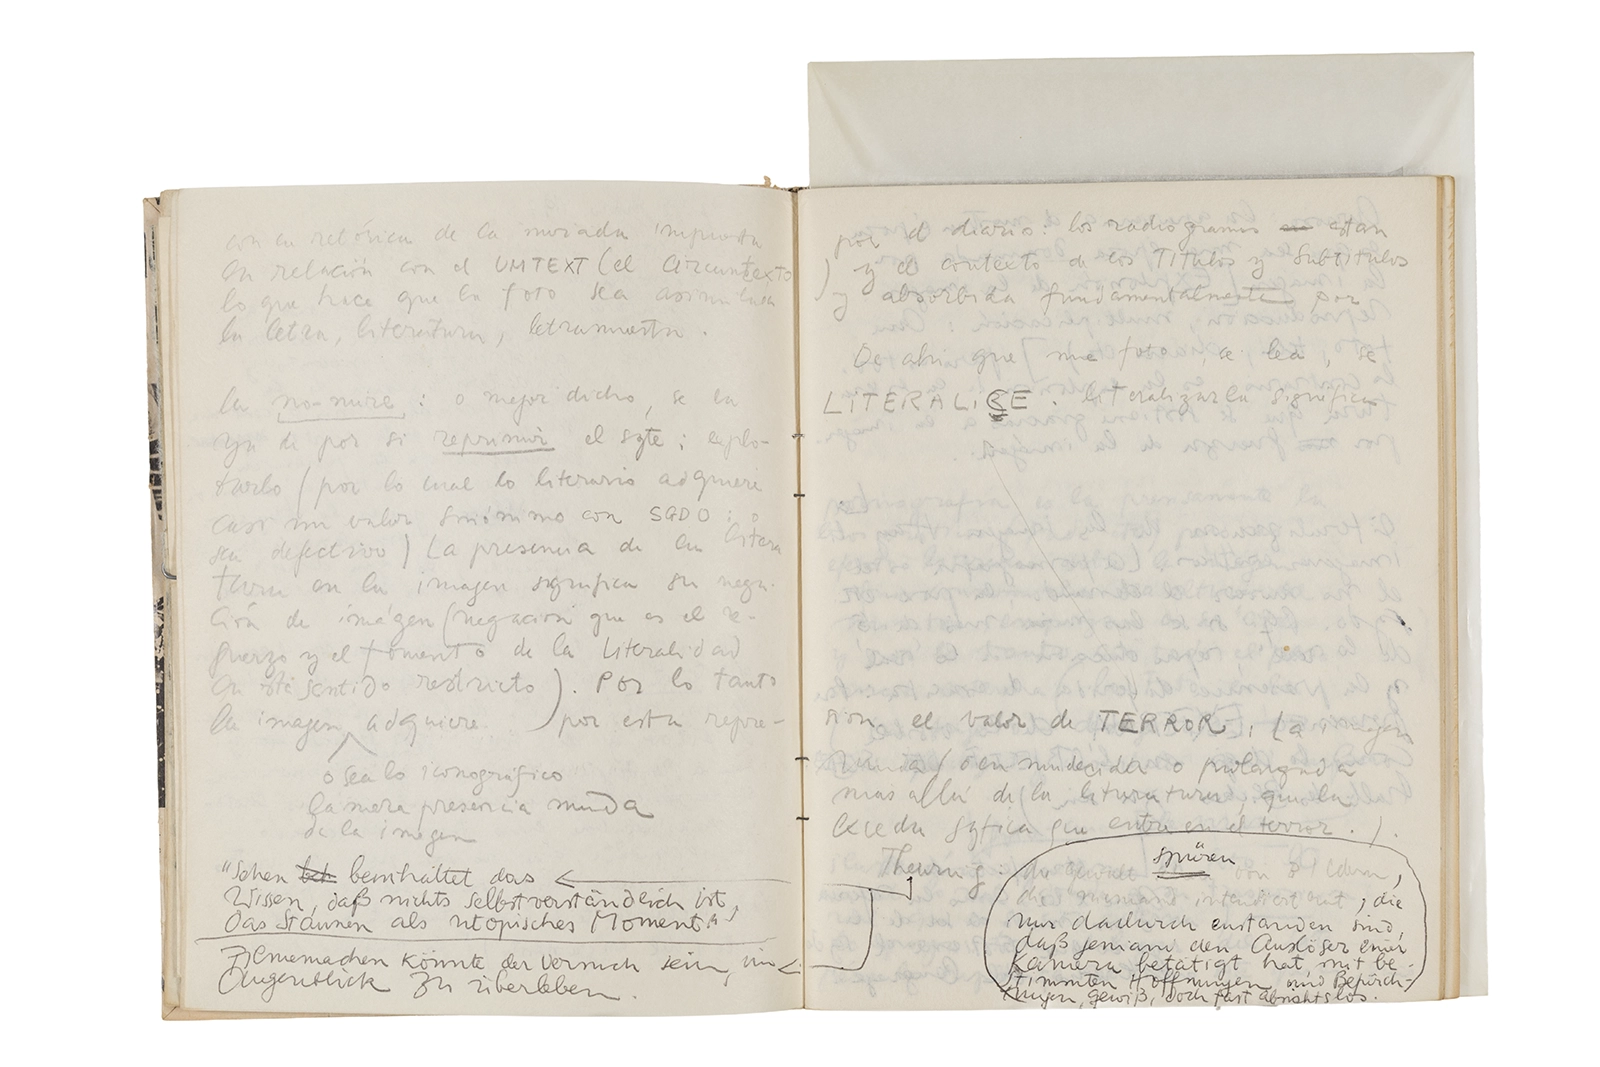 con su retórica de la mirada impresa
en relación con el UMTEXT (el circuntexto
lo que hace que la foto sea asimilada
la letra, literatura, letramuerta.
la no-mire: o mejor dicho, se la
ya de por si reprimir el sgte: explo-
tarlo (por lo cual lo literario adquiere
casi un valor sinónimo con SGDO: o
sea defectivo) La presencia de la litera
tura en la imagen significa su nega-
ción de imágen (negación que es el re-
fuerzo y el fomento de la literalidad
en este sentido restricto). Por lo tanto
la imagen adquiere )por esta repre-
o sea lo iconográfico
la mera presencia muda
de la imagen
"Sehen beinhaltet das
Wissen, daß nichts selbstverständlich ist,
das Staunen als utopisches Moment."
Filmemachen könnte der Versuch sein, im
Augenblick zu überleben.
por el diario: los radiogramas estan
) y el contexto de los Titulos y Subtitulos
y absorbida fundamentalmente por
De ahi que] una foto, se lea, se
LITERALICE. literalizarla significa
sion el valor de TERROR, La imagen
muda/ o enmudecida o prolongada
mas allá de la literatura que la
exceda sgfica que entra en el terror.).
Theuring: die gewalt von Bildern,
spüren
die niemand intendiert hat, die
nur dadurch entstanden sind,
daß jemand den Auslöser einer
Kamera betätigt hat, mit be-
stimmten Hoffnungen und Befürch-
tungen, gewiß, doch fast absichtslos.